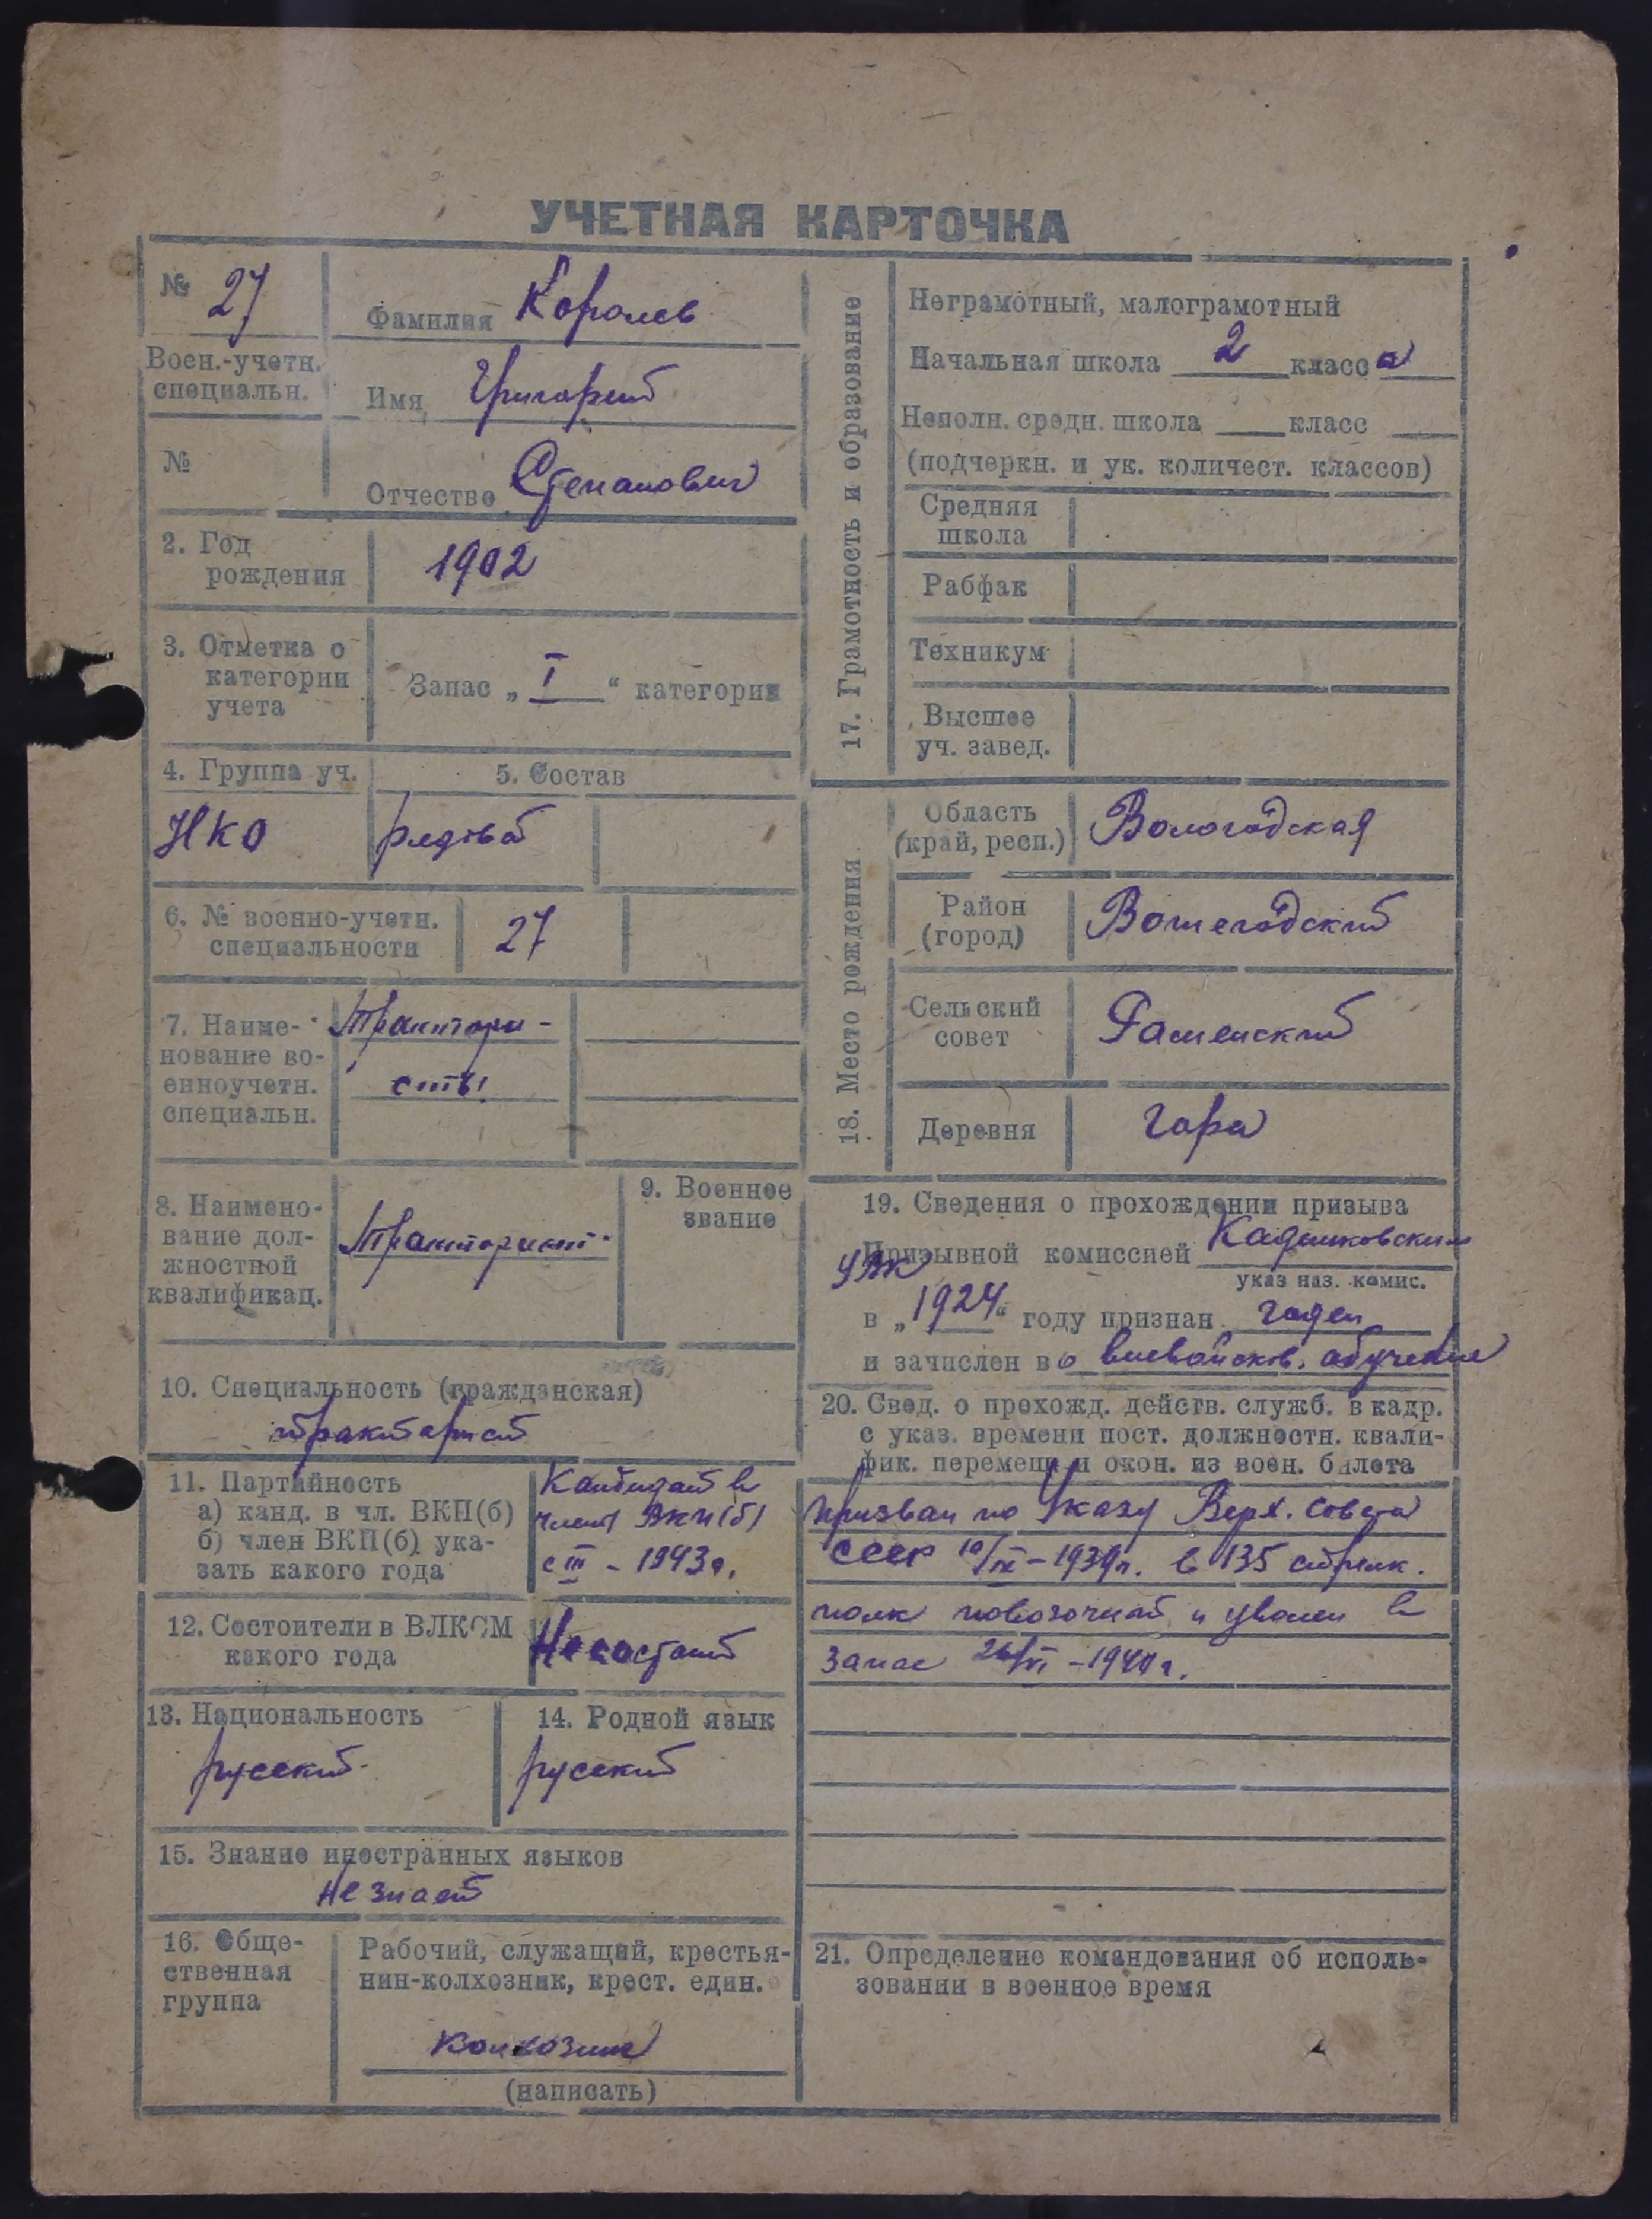 УЧЕТНАЯ КАРТОЧКА
№ 27
Фамилия Королев
Воен.-учетн.
специальн.
Имя Григорий
№
Отчество Степанович
2. Год
рождения
1902
3. Отметка о
категории
учета
Запас „ I “ категории
4. Группа уч.
5. Состав
НКО
рядовой
6. № военно-учетн.
специальности
27
7. Наиме-
нование во-
енноучетн.
специальн.
Трактори-
сты
8. Наимено-
вание дол-
жностной
квалификац.
Тракторист
9. Военное
звание
10. Специальность (гражданская)
тракторист
11. Партийность
а) канд. в чл. ВКП(б)
б) член ВКП(б) ука-
зать какого года
Кандидат в
члены ВКП(б)
с III - 1943г.
12. Состоит ли в ВЛКСМ
какого года
Не состоит
13. Национальность
русский
14. Родной язык
русский
15. Знание иностранных языков
Не знает
16. Обще-
ственная
группа
Рабочий, служащий, крестья-
нин-колхозник, крест. един.
колхозник
(написать)
17. Грамотность и образование
Неграмотный, малограмотный
Начальная школа 2 класса
Неполн. средн. школа класс
(подчеркн. и ук. количест. классов)
Средняя
школа
Рабфак
Техникум
Высшее
уч. завед.
18. Место рождения
Область
(край, респ.)
Вологодская
Район
(город)
Вожегодский
Сельский
совет
Раменский
Деревня
Гора
19. Сведения о прохождении призыва
Призывной комиссией Кадниковским
УВК
указ наз. комис.
в „1924“ году признан годен
и зачислен во вневойсков. обучение
20. Свед. о прохожд. действ. служб. в кадр.
с указ. времени пост. должностн. квали-
фик. перемещ. и окон. из воен. билета
Призван по Указу Верх. Совета
СССР 10/IX-1939г. в 135 стрелк.
полк повозочный и уволен в
запас 26/VI-1940г.
21. Определение командования об исполь-
зовании в военное время